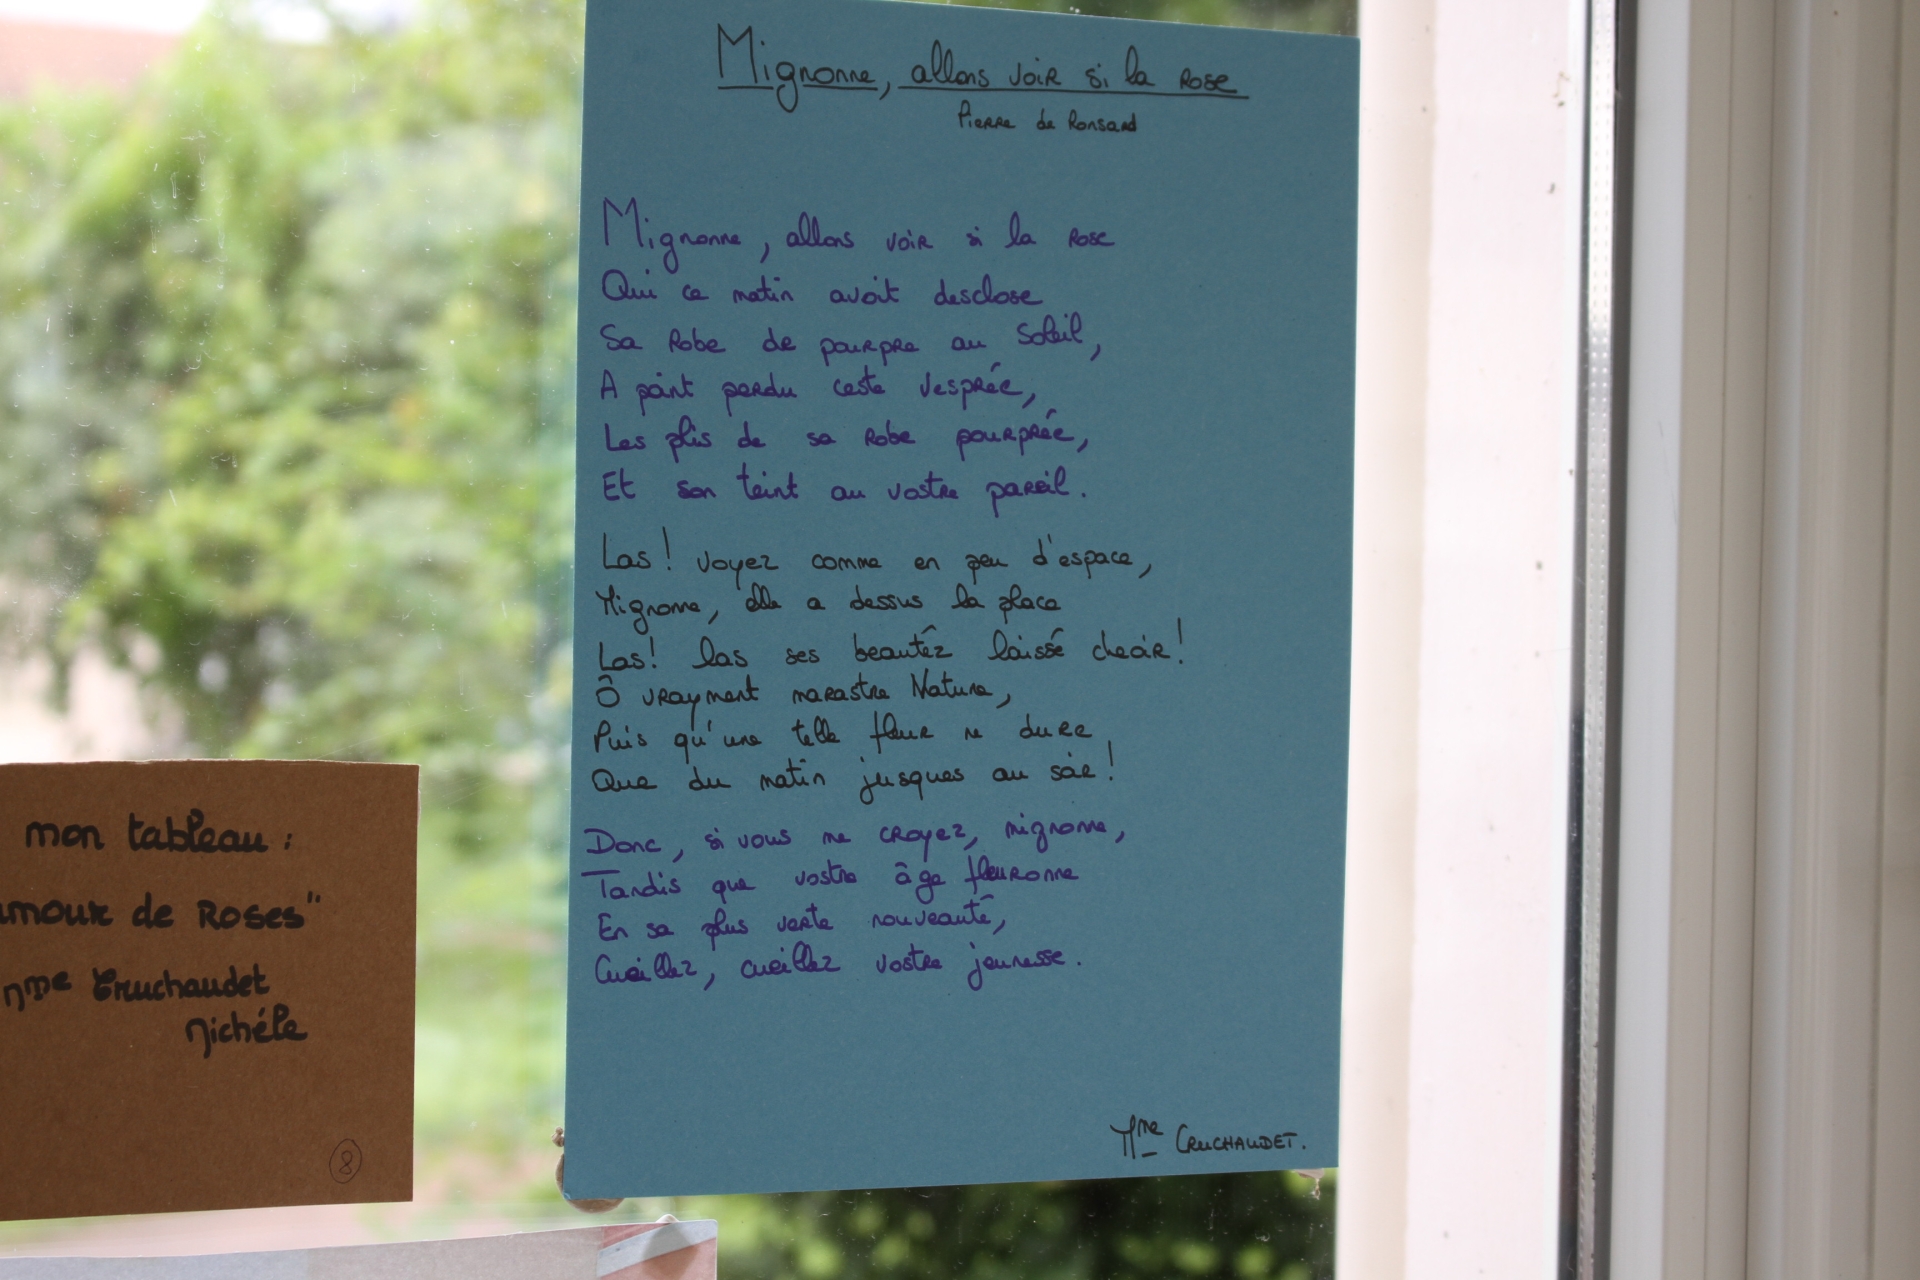 Mignonne, allons voir si la rose
Pierre de Ronsard
Mignonne, allons voir si la rose
Qui ce matin avoit desclose
Sa robe de pourpre au Soleil,
A point perdu ceste vesprée,
Les plis de sa robe pourprée,
Et son teint au vostre pareil.
Las! voyez comme en peu d'espace,
Mignonne, elle a dessus la place
Las! las ses beautéz laissé cheoir!
Ô vrayment marastre Nature,
Puis qu'une telle fleur ne dure
Que du matin jusques au soir!
Donc, si vous me croyez, mignonne,
Tandis que vostre âge fleuronne
En sa plus verte nouveauté,
Cueillez, cueillez vostre jeunesse.
Mme CRUCHAUDET.
mon tableau :
amour de Roses"
Mme Cruchaudet
Michéle
8